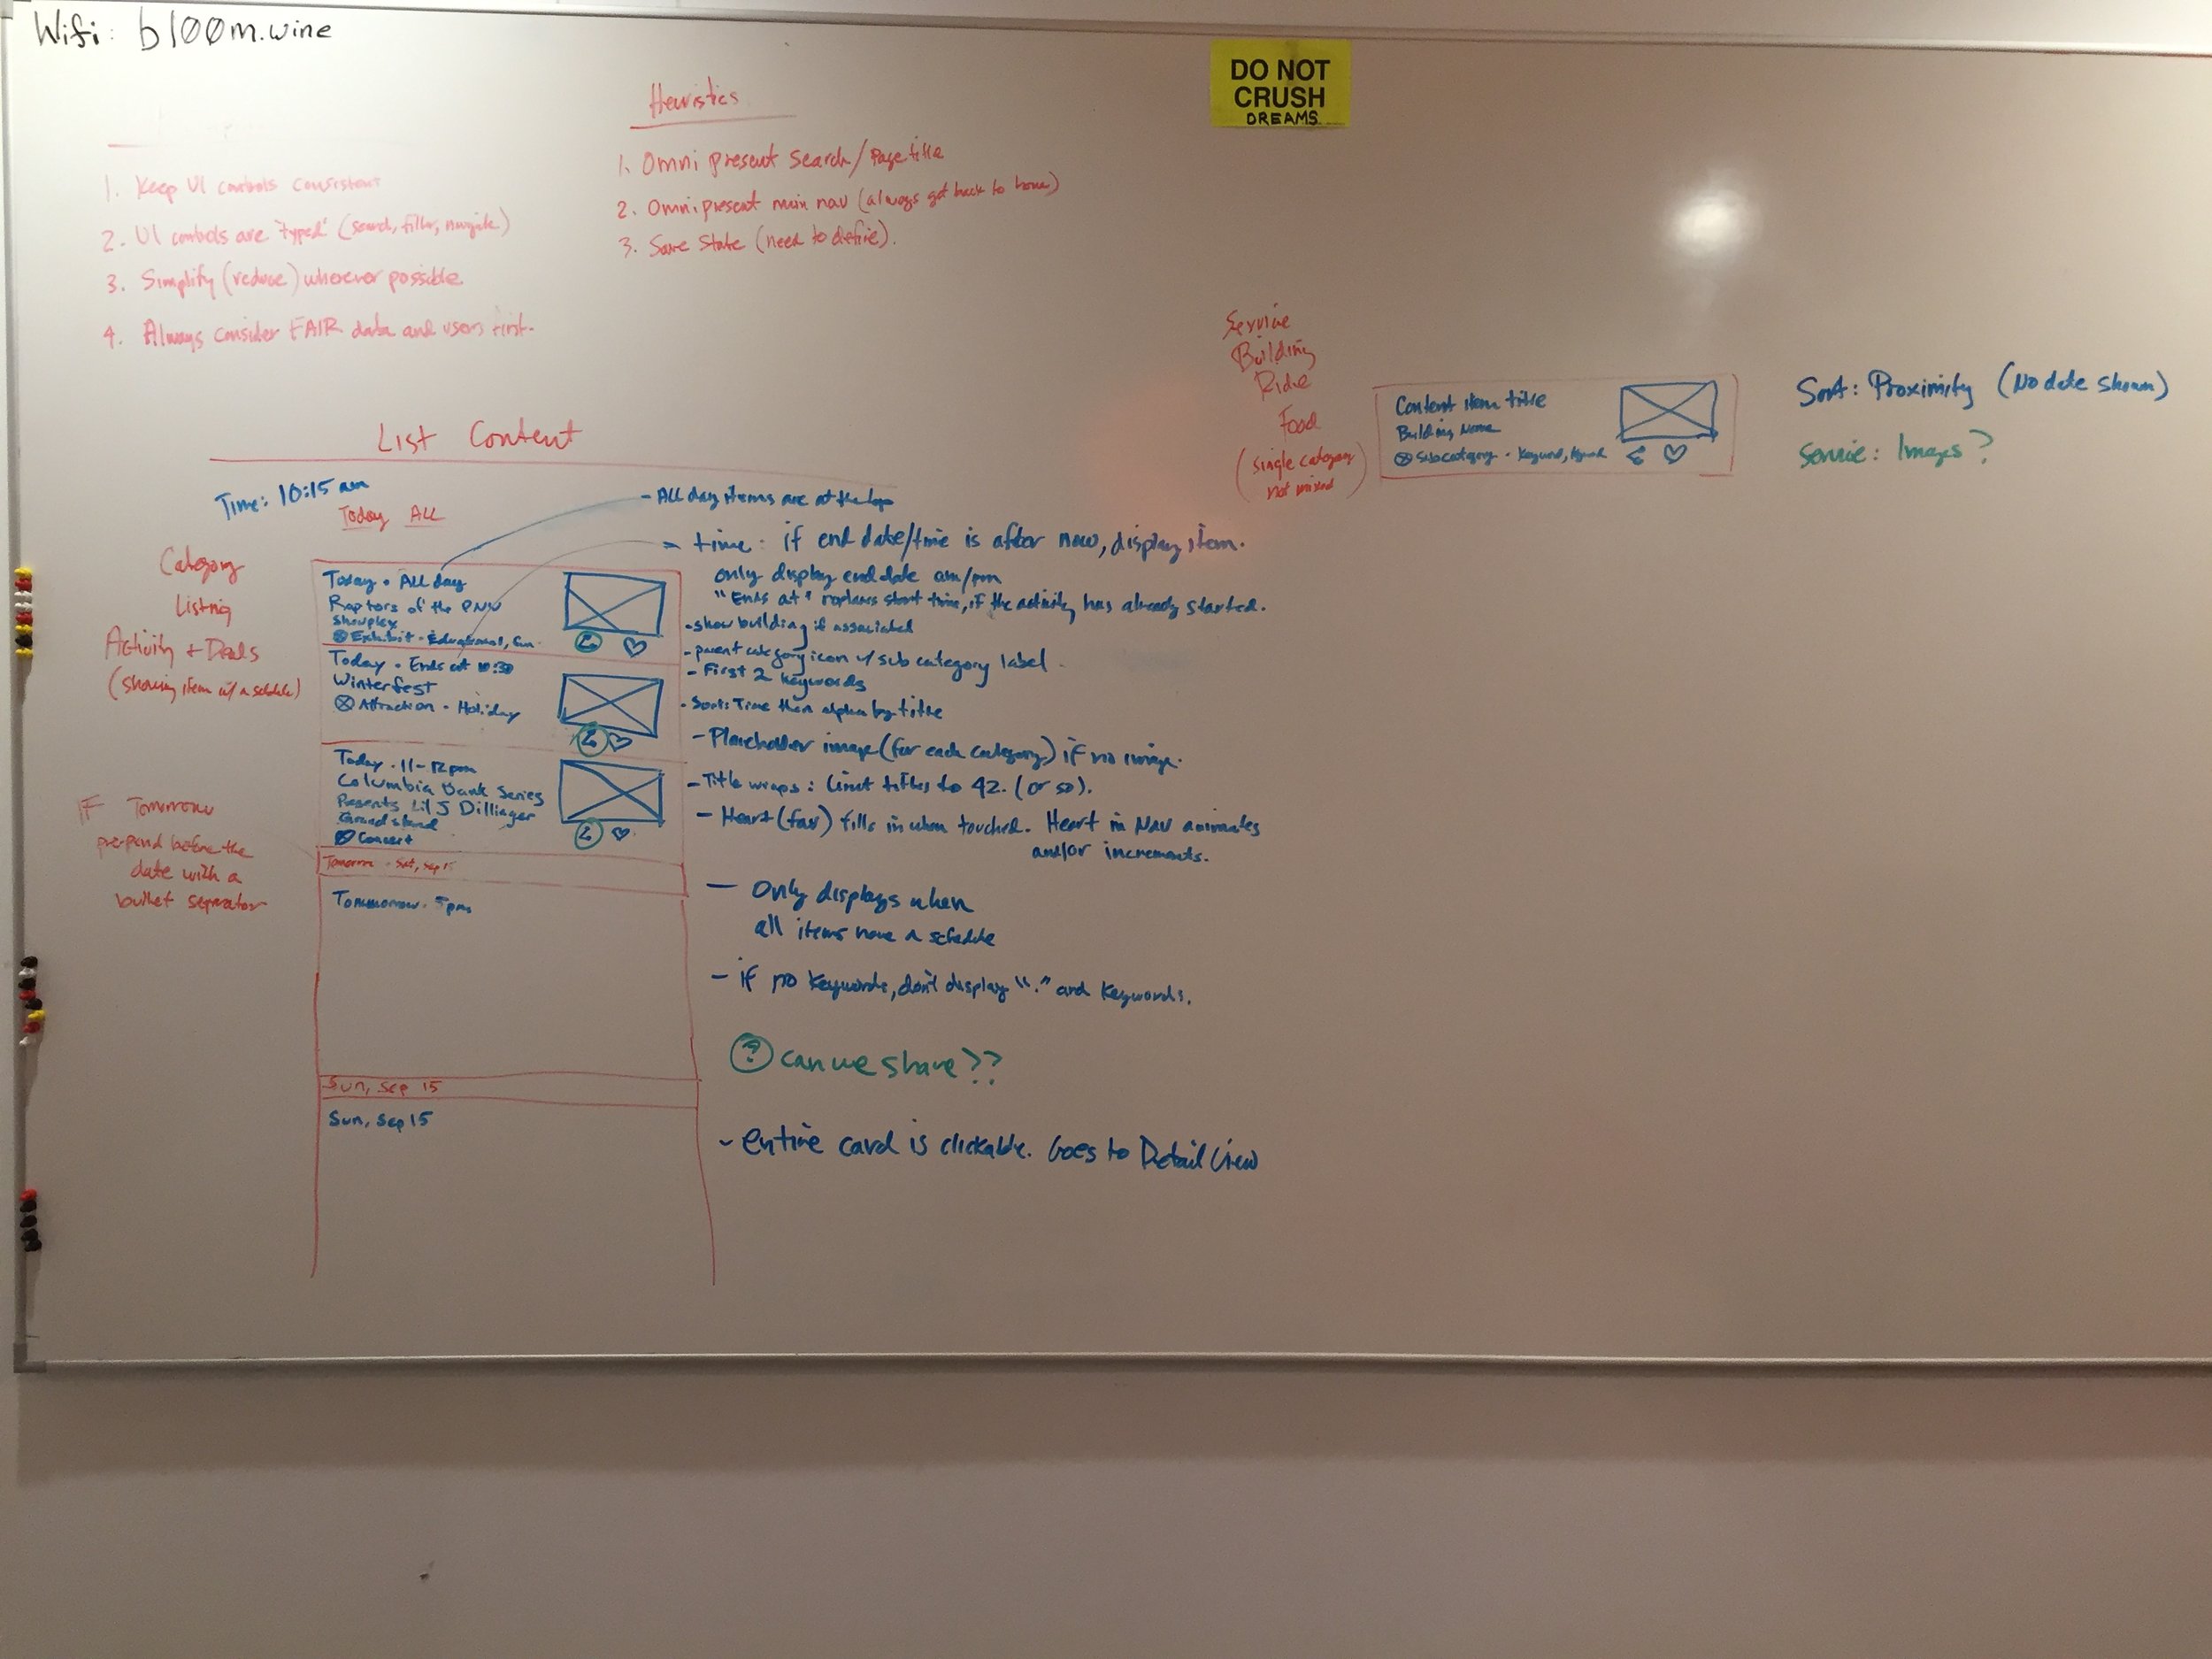 Wifi: bl00m.wine
DO NOT
CRUSH
DREAMS
1. Keep UI controls consistent
2. UI controls are "typed" (search, filter, navigate)
3. Simplify (reduce) wherever possible
4. Always consider FAIR data and users first.
Heuristics
1. Omni present search/Page title
2. Omnipresent main nav (always get back to home)
3. Save State (need to define).
List Content
Time: 10:15 am
Today ALL
Category
Listing
Activity + Deals
(showing item w/ a schedule)
Today • All day
Raptors of the PNW
Showplex
Exhibit • Educational, fun
Today • Ends at 10:30
Winterfest
Attraction • Holiday
Today • 11-12pm
Columbia Bank Series
Presents Lil J Dillinger
Grandstand
Concert
Tomorrow • Sat, Sep 15
Tommorrow • 5pm
Sun, Sep 15
Sun, Sep 15
IF Tomorrow
pre-pend before the
date with a
bullet separator
- All day items are at the top
time: if end date/time is after now, display item.
only display end date am/pm
"Ends at" replaces start time, if the activity has already started.
- show building if associated
- parent category icon w/ sub category label
- First 2 keywords
- Sorts Time then alpha by title
- Placeholder image (for each category) if no image.
- Title wraps: limit titles to 42. (or so).
- Heart (fav) fills in when touched. Heart in NAV animates
and/or increments.
- Only displays when
all items have a schedule
- if no keywords, don't display "•" and keywords.
? can we share??
- entire card is clickable. Goes to Detail View
Service
Building
Ride
Food
(single category
not mixed)
Content item title
Building Name
Subcategory • Keyword,
Sort: Proximity (No date shown)
Service: Images?